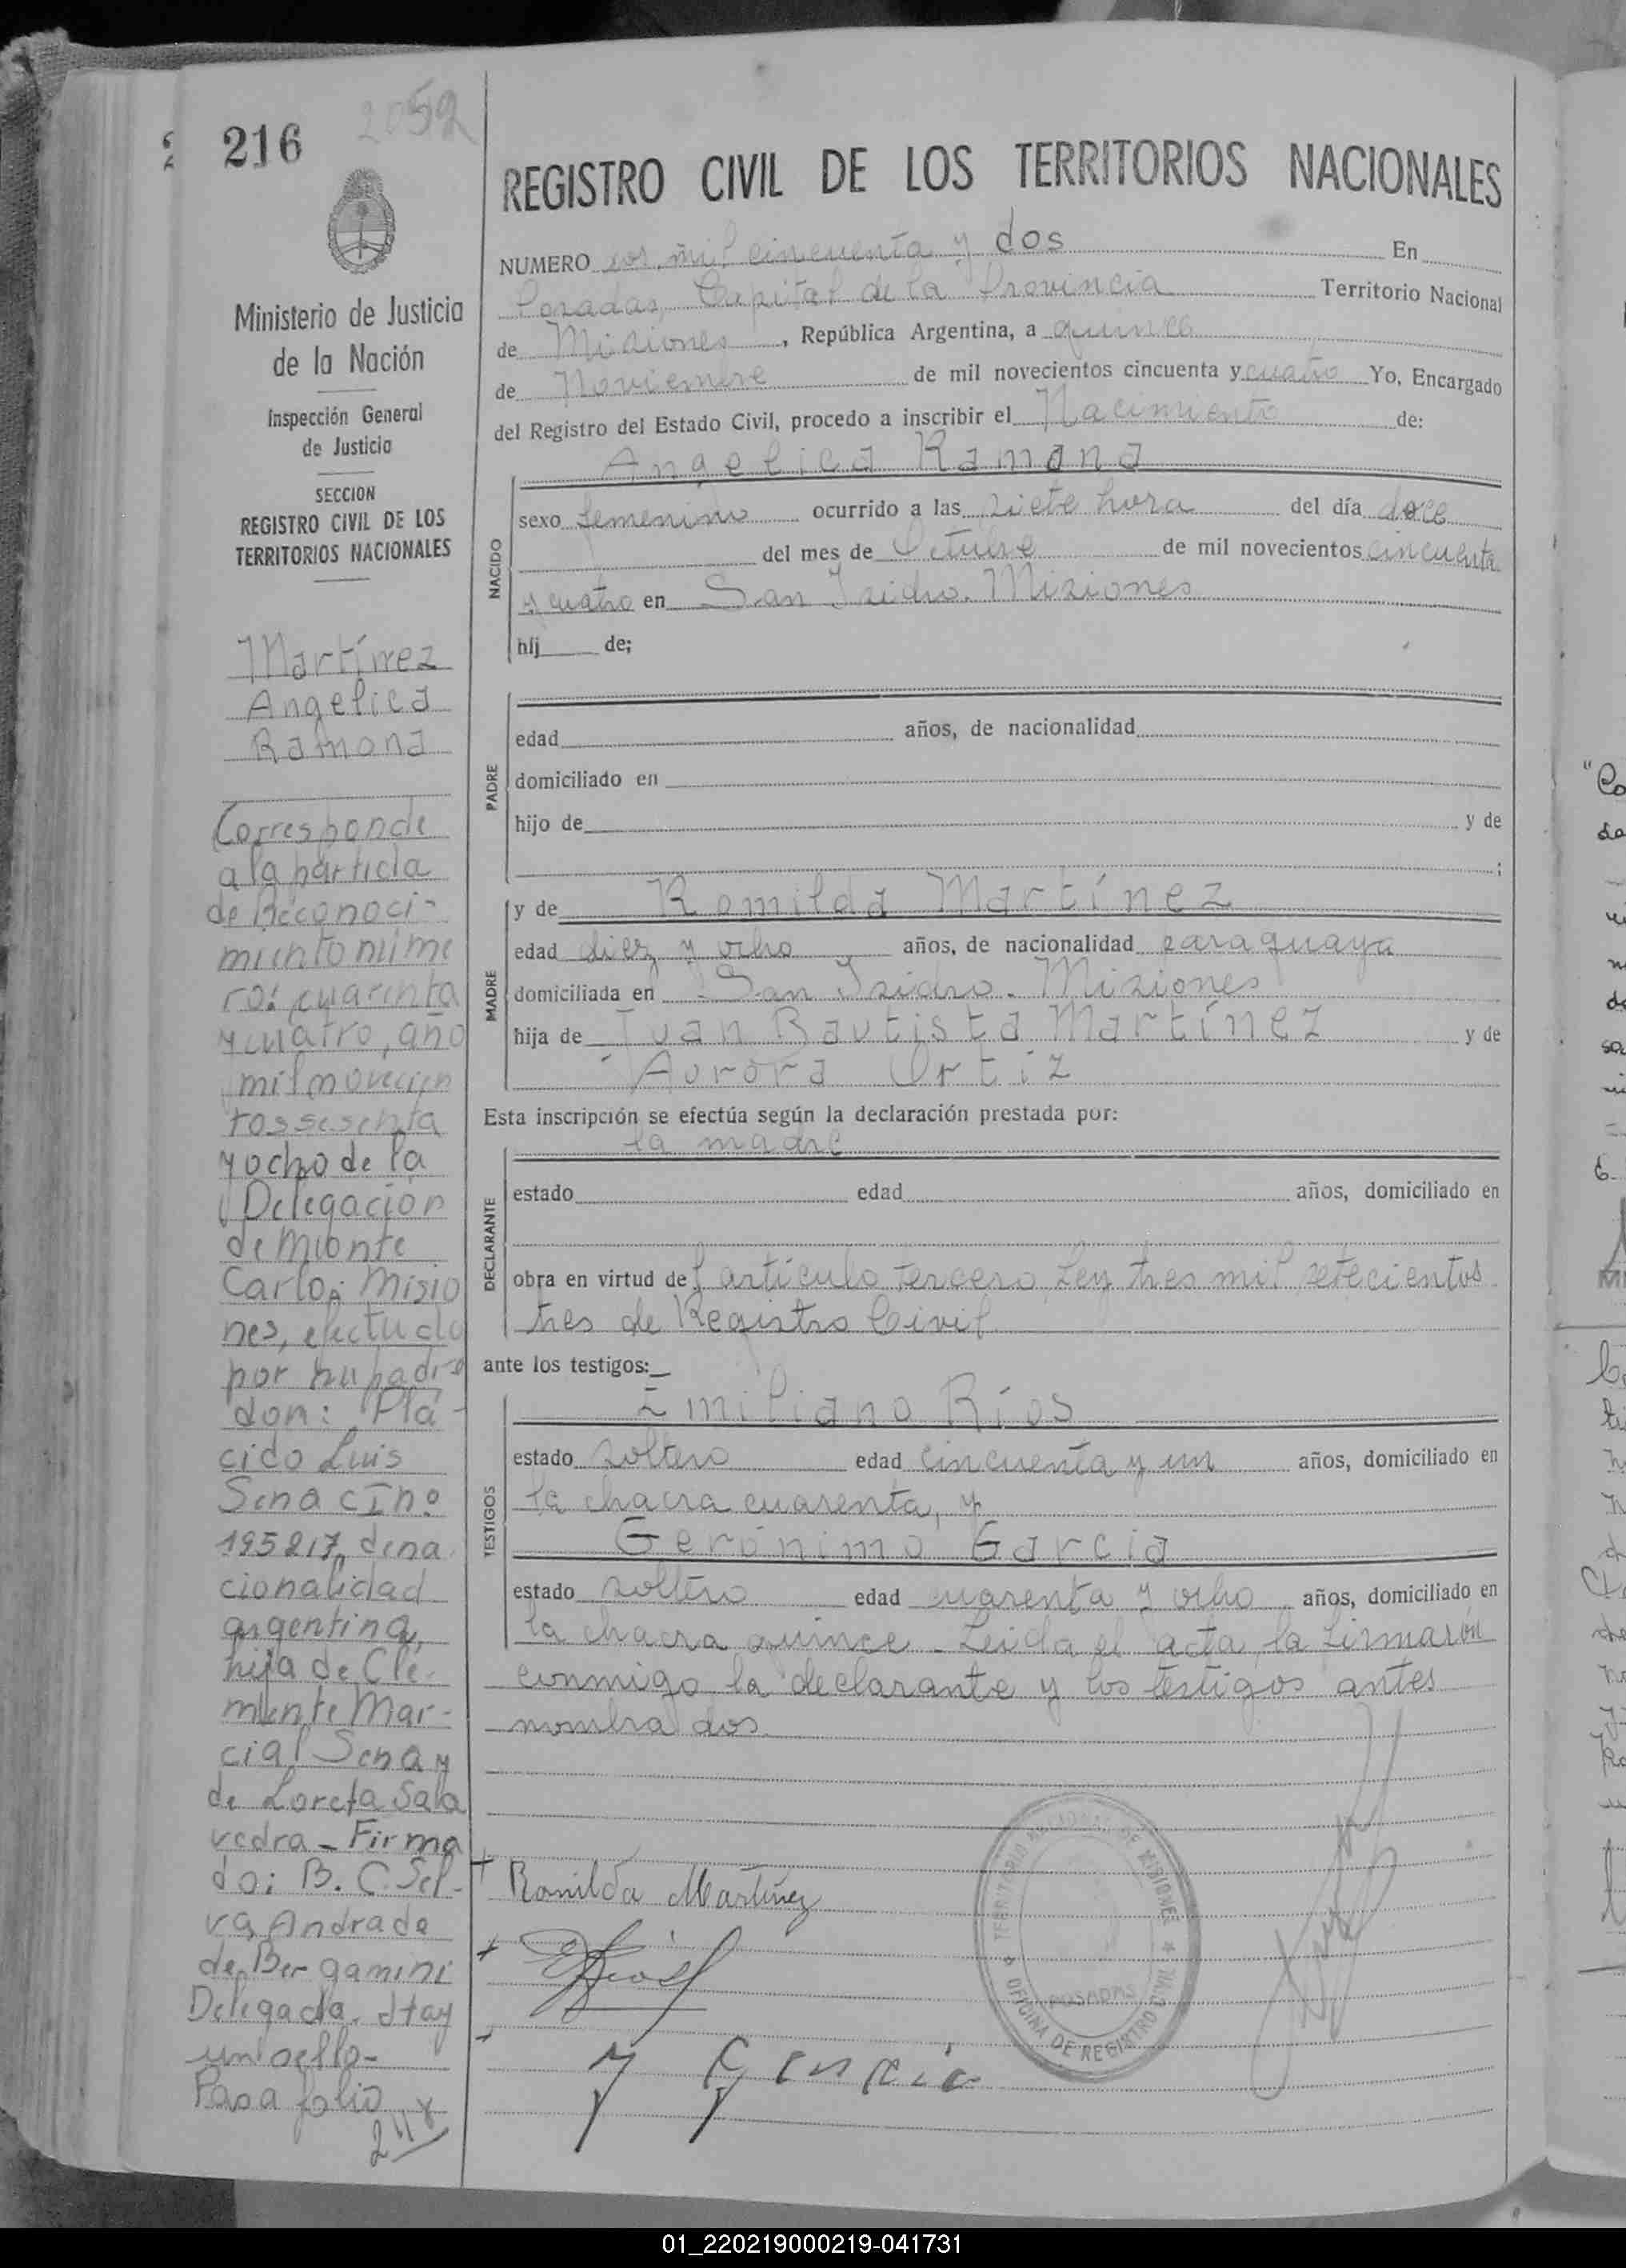 216
2052
Ministerio de Justicia
de la Nación
Inspección General
de Justicia
SECCION
REGISTRO CIVIL DE LOS
TERRITORIOS NACIONALES
Martínez
Angelica
Ramona
Corresponde
a la partida
de Reconoci-
miento núme
ro: cuarenta
y cuatro, año
mil novecien
tos sesenta
y ocho de la
Delegación
de Monte
Carlo; Misio
nes, efectudo
por su padre
don: Plá-
cido Luis
Sena CI nº
195217, de na
cionalidad
argentina,
hijo de Cle-
mente Mar-
cial Sena y
de Loreta Saa
vedra - Firma
do: B. C. Sel-
va Andrade
de Bergamini
Delegada. Hay
un sello-
Pasa folio
218
REGISTRO CIVIL DE LOS TERRITORIOS NACIONALES
NUMERO dos mil cincuenta y dos En
Posadas, Capital de la Provincia Territorio Nacional
de Misiones, República Argentina, a quince
de Noviembre de mil novecientos cincuenta y cuatro Yo, Encargado
del Registro del Estado Civil, procedo a inscribir el Nacimiento de:
Angelica Ramona
NACIDO
sexo femenino ocurrido a las siete hora del día doce
del mes de Octubre de mil novecientos cincuenta
y cuatro en San Isidro. Misiones
hij de;
PADRE
edad años, de nacionalidad
domiciliado en
hijo de y de
;
MADRE
y de Romilda Martínez
edad diez y ocho años, de nacionalidad paraguaya
domiciliada en San Isidro. Misiones
hija de Juan Bautista Martínez y de
Aurora Ortiz
Esta inscripción se efectúa según la declaración prestada por:
la madre
DECLARANTE
estado edad años, domiciliado en
obra en virtud del artículo tercero Ley tres mil setecientos
tres de Registro Civil
ante los testigos:
TESTIGOS
Emiliano Ríos
estado soltero edad cincuenta y un años, domiciliado en
la chacra cuarenta, y
Gerónimo García
estado soltero edad cuarenta y ocho años, domiciliado en
la chacra quince. Leida el acta, la firmarón
conmigo la declarante y los testigos antes
nombrados
Romilda Martínez
TERRITORIO NACIONAL DE MISIONES
POSADAS
OFICINA DE REGISTRO CIVIL
01_220219000219-041731